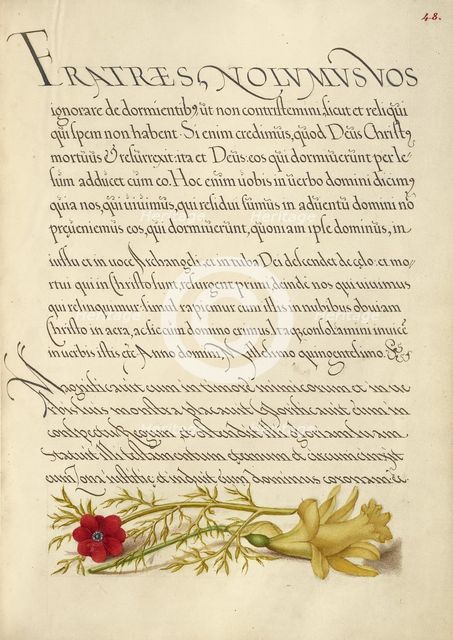 48.
FRATRES, NOLUMUS VOS
ignorare de dormientibꝰ, ut non contristemini, sicut et reliqui
qui spem non habent. Si enim credimus, quod Deus Christꝰ
mortuus & resurrexit: ita et Deus: eos qui dormierunt per Ie-
sum adducet cum eo. Hoc enim uobis in uerbo domini dicimꝰ,
quia nos, qui uiuimus, qui residui sumus in aduentu domini nõ
preueniemus eos, qui dormierunt, quoniam ipse dominus, in
iussu et in uoce Archangeli et in tuba Dei descendet de celo: et mor-
tui qui in Christo sunt, resurgent primi, deinde nos qui uiuimus
qui relinquimur simul rapiemur cum illis in nubibus obuiam
Christo in aera, ac sic cum domino erimus. Itaq; consolamini inuicẽ
in uerbis istis etc. Anno domini Millesimo quingentesimo.
Magnificauit eum in timore inimicorum et in u
erbis suis monstra placauit glorificauit eum in
conspectu Regum et ostendit illi gloriam suam
statuit illi testamentum eternum et circumcinxit
eum Zona institie, et induit eum dominus coronam
Heritage
Heritage
Heritage
Heritage